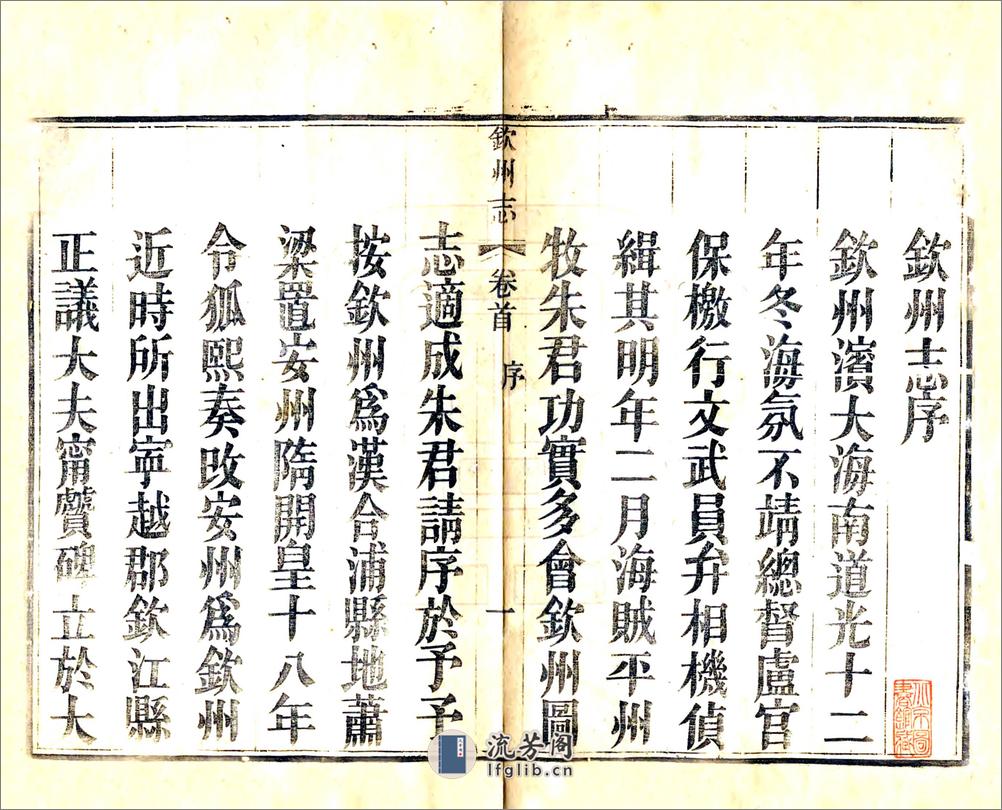 欽州志序
欽州濱大海南道光十二
年冬海氛不靖總督盧宫
保檄行文武員弁相機偵
緝其明年二月海賊平州
牧朱君功實多會欽州圖
欽州志
卷首
序
一
志適成朱君請序於予予
按欽州爲漢合浦縣地蕭
梁置安州隋開皇十八年
令狐熙奏改安州爲欽州
近時所出寕越郡欽江縣
正議大夫甯贙碑立於大
流芳阁
lfglib.cn